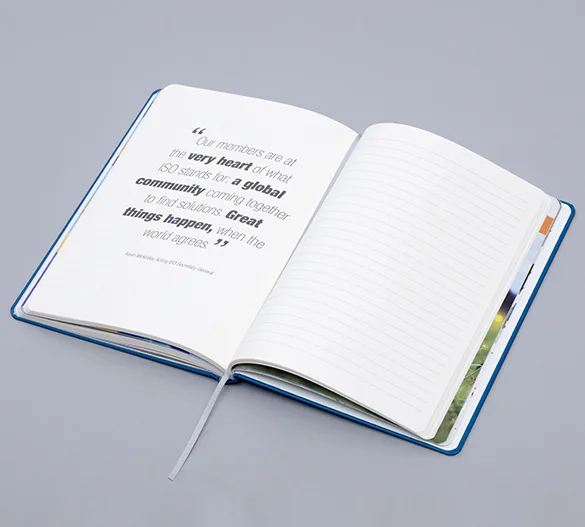 “Our members are at
the very heart of what
ISO stands for: a global
community coming together
to find solutions. Great
things happen, when the
world agrees.”
Kevin McKinley, Acting ISO Secretary-General